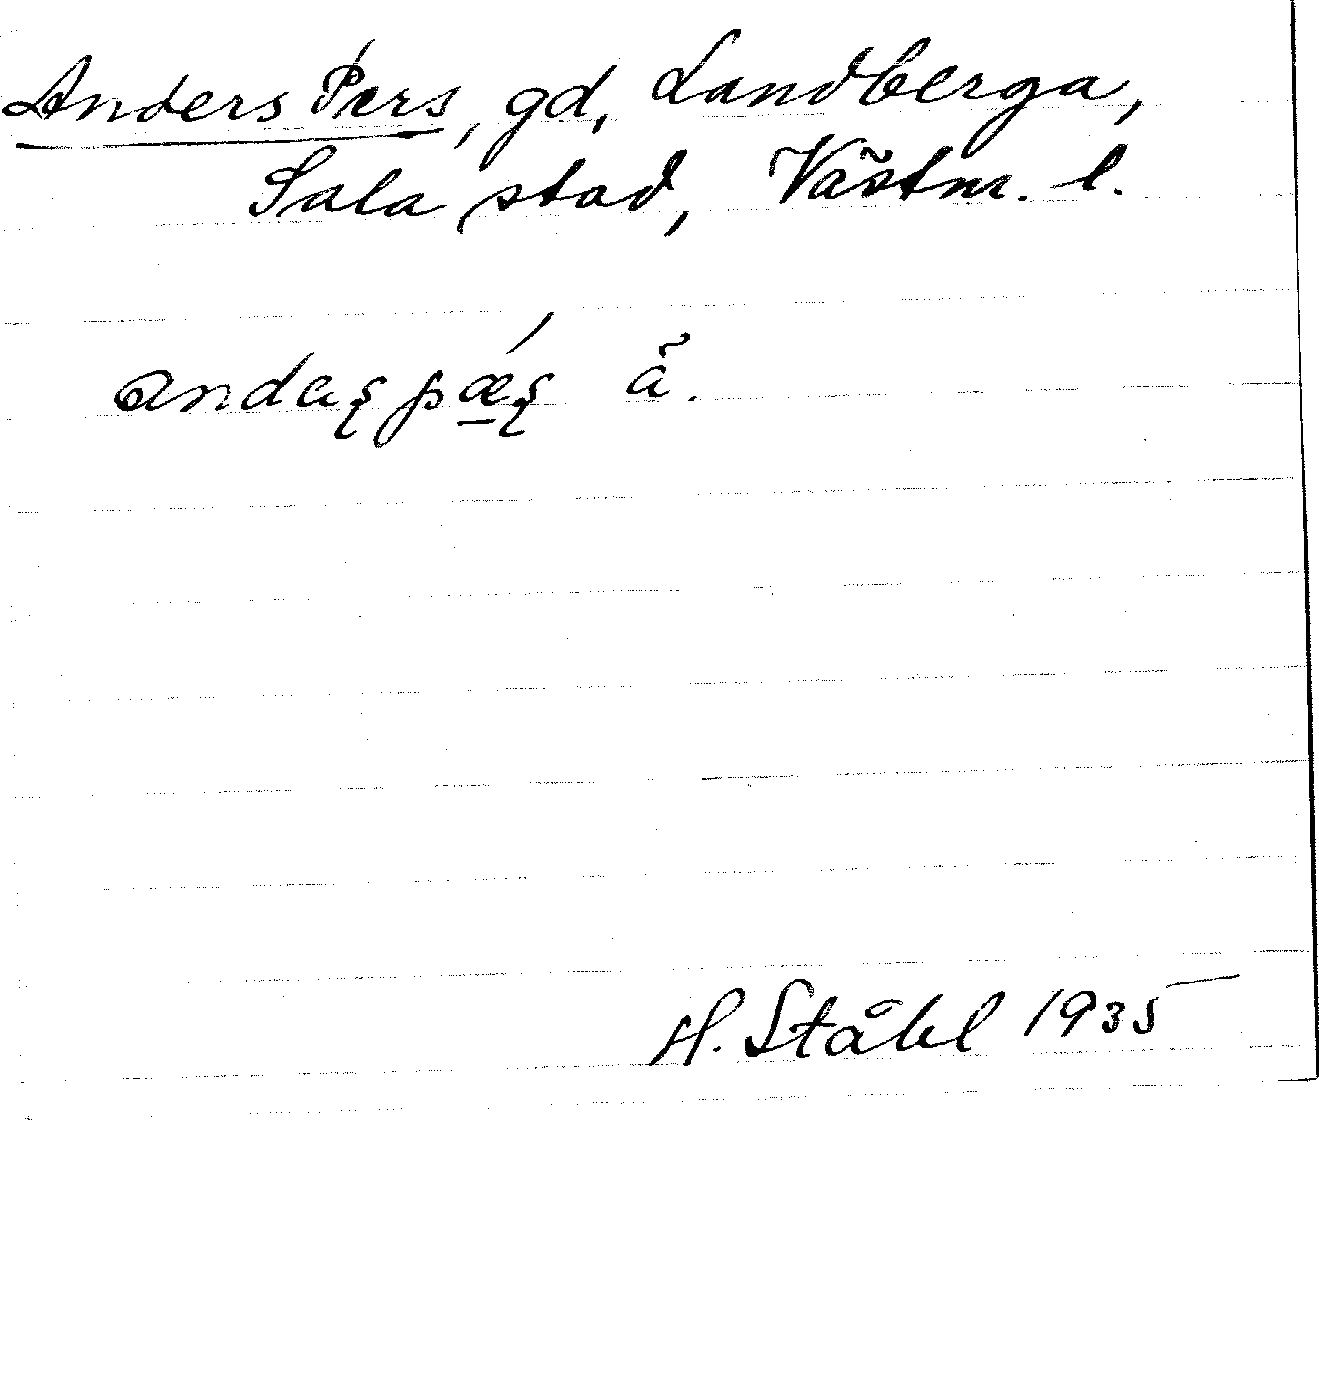 Anders Pers, gd, Landberga,
Sala stad, Västm. l.
andaʂpǽʂ ä.
H. Ståhl 1935